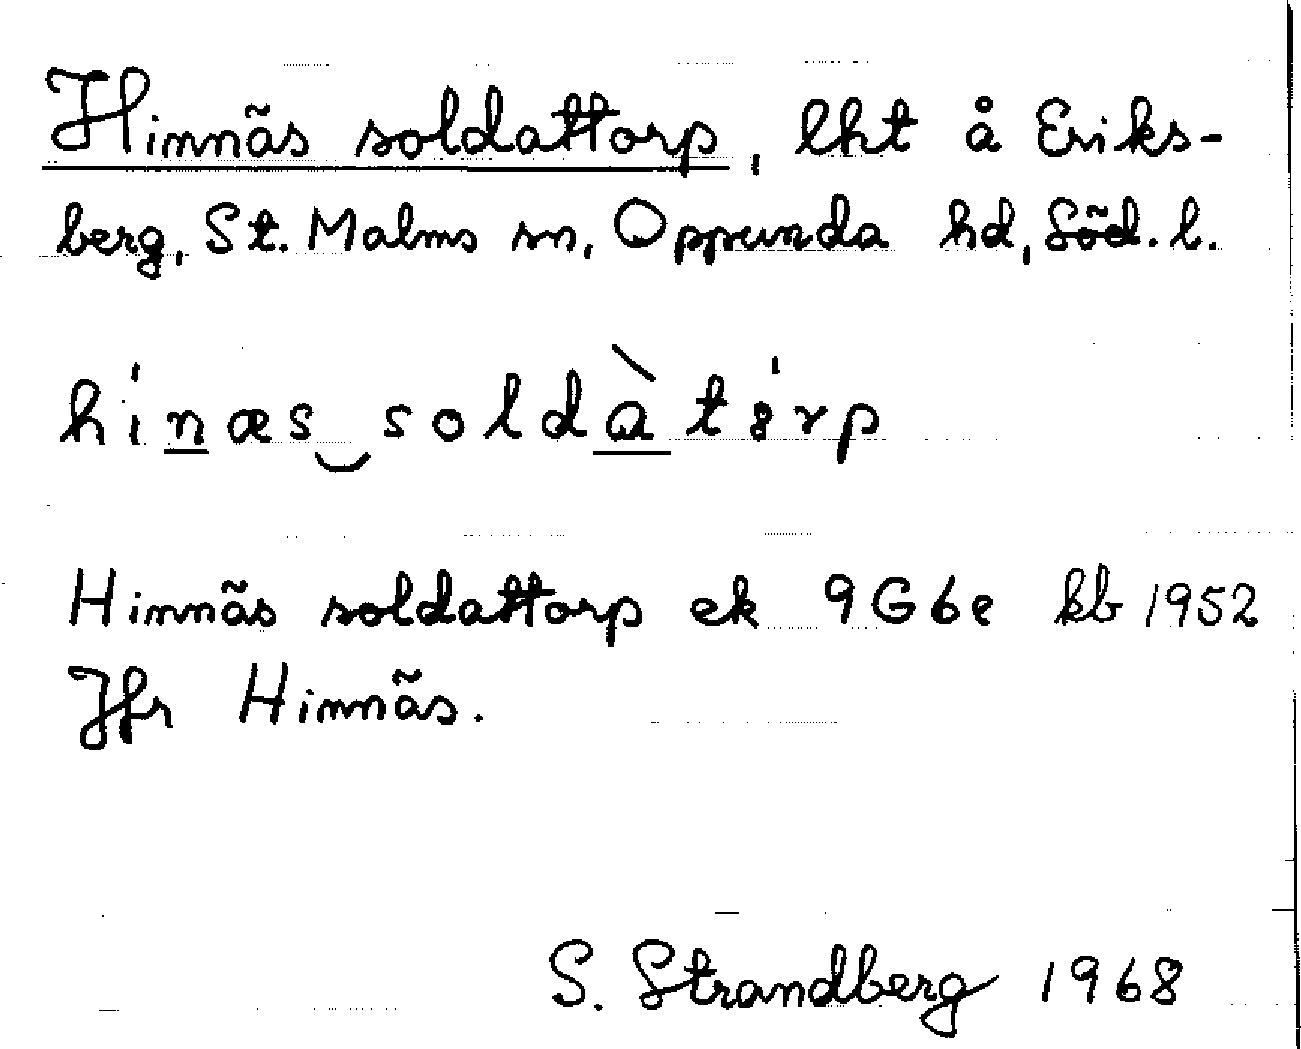 Himnäs soldattorp, lht å Eriks-
berg, St. Malms sn, Oppunda hd, Söd. l.
hi'næs‿soldàtt'örp
Himnäs soldattorp ek 9G6e kb 1952
Jfr Himnäs.
S. Strandberg 1968